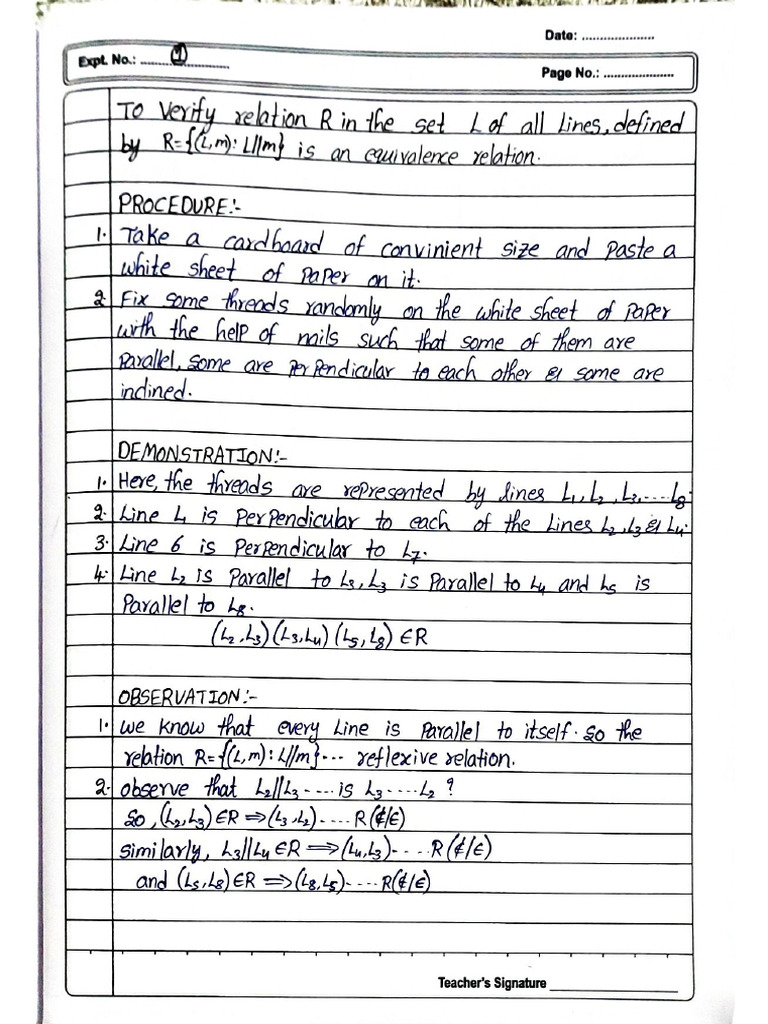 Date: ....................
Expt. No.: ........ 1 ................
Page No.: ....................
To verify relation R in the set L of all lines, defined
by R={(L,m): L//m} is an equivalence relation.
PROCEDURE:-
1. Take a cardboard of convinient size and paste a
white sheet of paper on it.
2. Fix some threads randomly on the white sheet of paper
with the help of nails such that some of them are
parallel, some are perpendicular to each other & some are
inclined.
DEMONSTRATION:-
1. Here, the threads are represented by lines L₁, L₂, L₃,....L₈.
2. Line L₁ is perpendicular to each of the lines L₂, L₃ & L₄.
3. Line 6 is perpendicular to L₇.
4. Line L₂ is parallel to L₃, L₃ is parallel to L₄ and L₅ is
parallel to L₈.
(L₂,L₃)(L₃,L₄)(L₅,L₈) ∈R
OBSERVATION:-
1. we know that every line is parallel to itself. so the
relation R={(L,m): L//m}... reflexive relation.
2. observe that L₂//L₃ .... is L₃ ....L₂ ?
so, (L₂,L₃)∈R ⇒(L₃,L₂).....R(∉/∈)
similarly, L₃//L₄ ∈R ⇒(L₄,L₃).....R(∉/∈)
and (L₅,L₈)∈R ⇒(L₈,L₅).....R(∉/∈)
Teacher's Signature ____________________